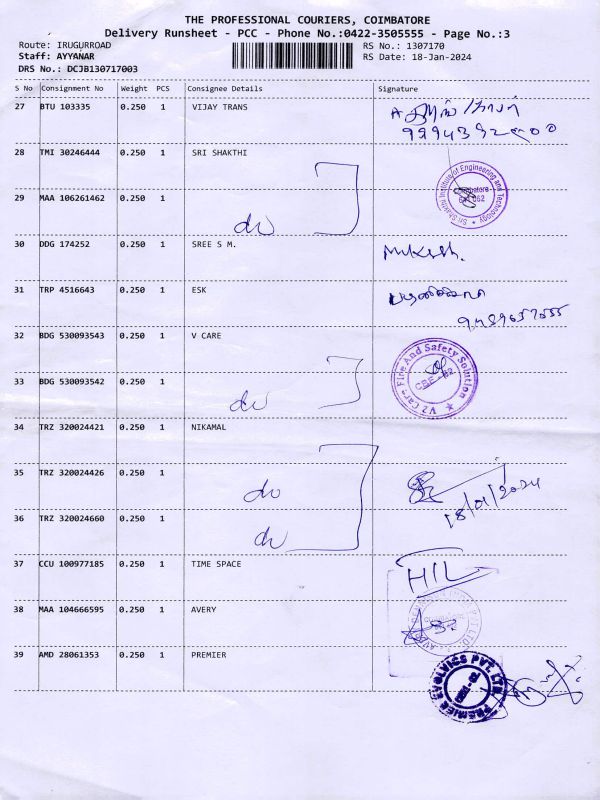 THE PROFESSIONAL COURIERS, COIMBATORE
Delivery Runsheet - PCC - Phone No.:0422-3505555 - Page No.:3
Route: IRUGURROAD
Staff: AYYANAR
DRS No.: DCJB130717003
RS No.: 1307170
RS Date: 18-Jan-2024
S No Consignment No Weight PCS Consignee Details Signature
27 BTU 103335 0.250 1 VIJAY TRANS
28 TMI 30246444 0.250 1 SRI SHAKTHI
Sri Shakthi Institute of Engineering and Technology
29 MAA 106261462 0.250 1
do
30 DDG 174252 0.250 1 SREE S M. Mukesh.
31 TRP 4516643 0.250 1 ESK
32 BDG 530093543 0.250 1 V CARE
V2 Care Fire And Safety Solution
CBE - 62
33 BDG 530093542 0.250 1
do
34 TRZ 320024421 0.250 1 NIKAMAL
35 TRZ 320024426 0.250 1
do 18/01/2024
36 TRZ 320024660 0.250 1
do
37 CCU 100977185 0.250 1 TIME SPACE HIL
38 MAA 104666595 0.250 1 AVERY
39 AMD 28061353 0.250 1 PREMIER
PREMIER EVOLVICS PVT. LTD.